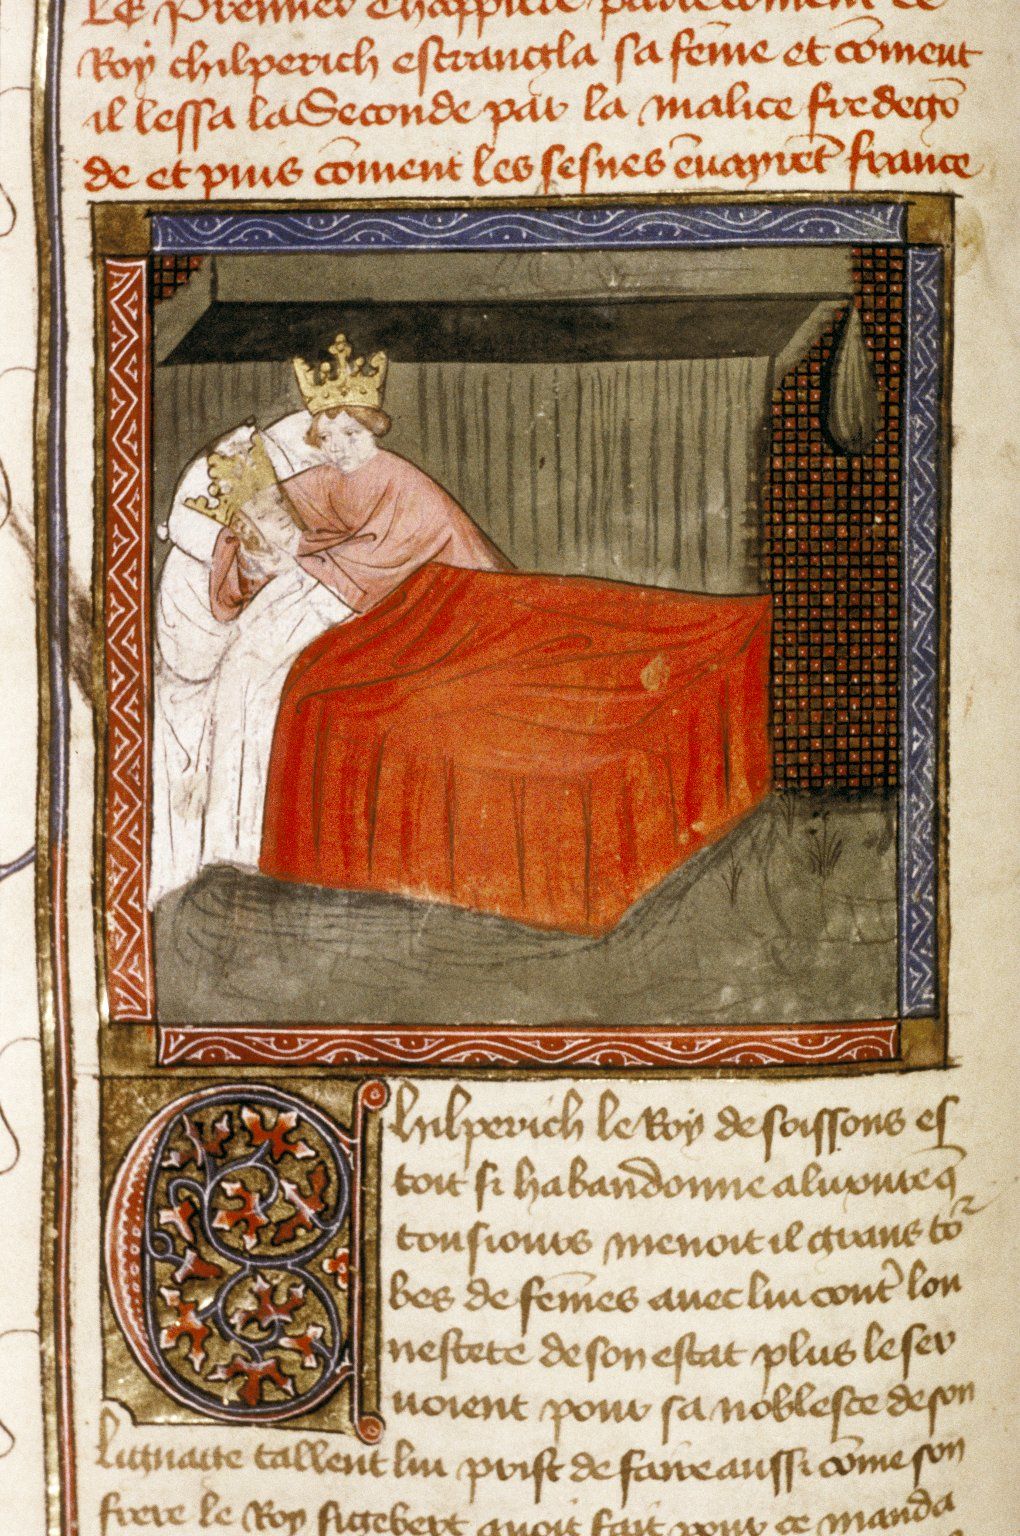 Le Premier chappitre parle coment le
Roy chilperich estrangla sa fem̄e et cōment
il lessa la Seconde par la malice fredegō
de et puis cōment les sesnes ēvayrēt france
Chilperich le Roy de soissons es
toit si habandonne a luxure q̄
tousiours menoit il grans tor
bes de fem̄es avec lui contr̄ lon
nestete de son estat plus le ser
voient pour sa noblesce de son
lignaige tallent lui prist de faire aussi cōme son
frere le Roy sigebert avoit fait pour ce manda